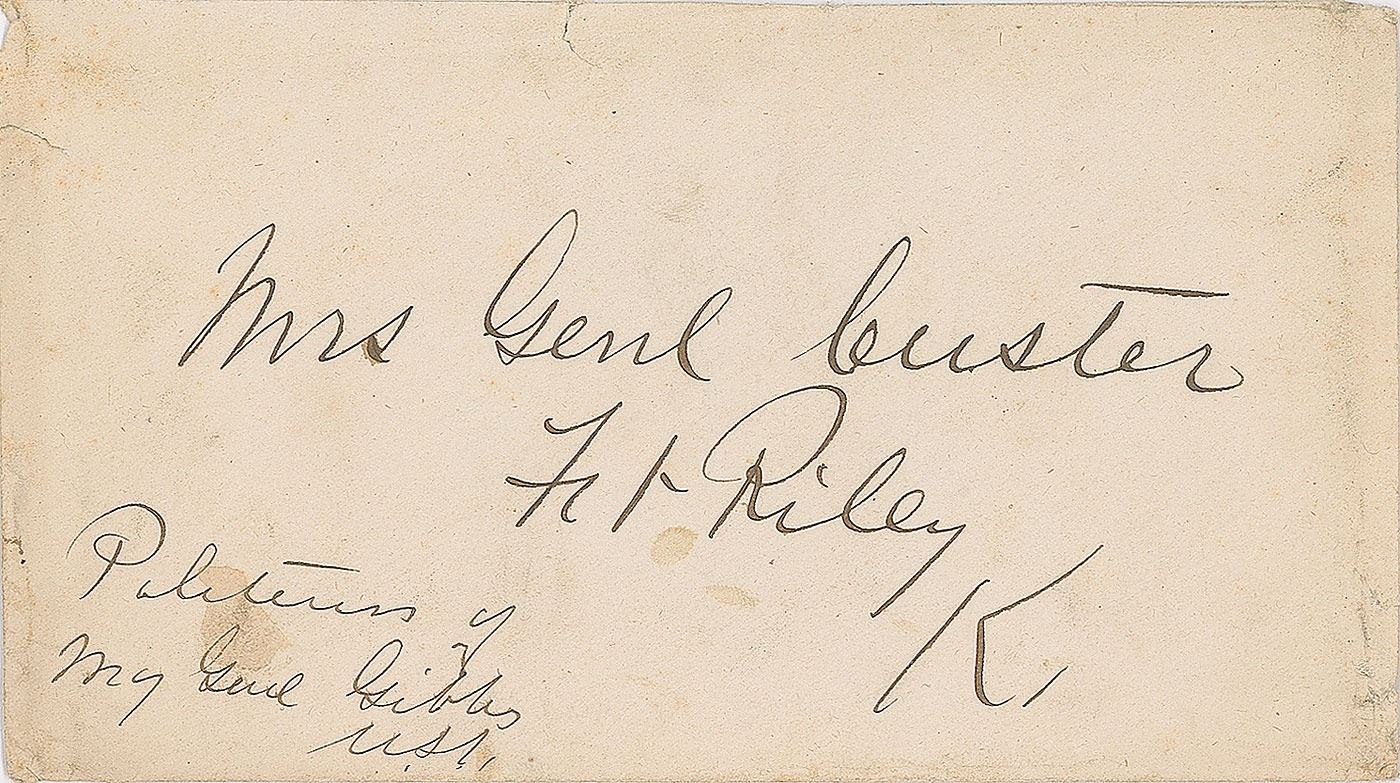 Mrs Genl Custer
Ft Riley
K,
Politeness of
Maj Genl Gibbs
U.S.A.